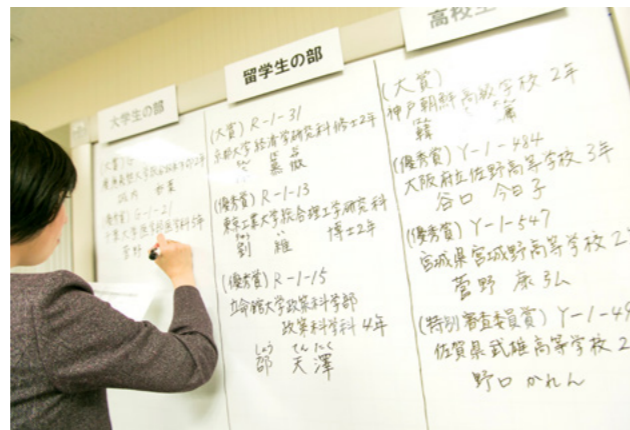 大学生の部
(大賞)
優秀賞) G-1-21
千葉大学医学部医学科5年
菅野
留学生の部
(大賞) R-1-31
京都大学経済学研究科修士2年
(優秀賞) R-1-13
東京工業大学総合理工学研究科
博士2年
りゅう
劉 雄
(優秀賞) R-1-15
立命館大学政策科学部
政策科学科 4年
しょう てんたく
邵 天澤
高校生
(大賞)
神戸朝鮮高級学校 2年
韓
(優秀賞) Y-1-484
大阪府立佐野高等学校 3年
谷口 今日子
(優秀賞) Y-1-547
宮城県宮城野高等学校 2
菅野 康弘
(特別審査委員賞) Y-1-49
佐賀県武雄高等学校 2
野口 かれん